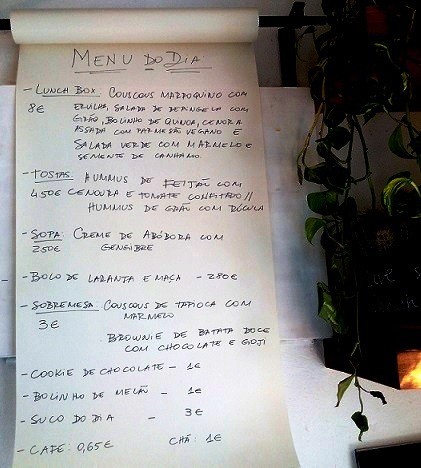 MENU DO DIA
- LUNCH BOX: COUSCOUS MARROQUINO COM
8€ ERVILHA, SALADA DE BERINGELA COM
GRÃO, BOLINHO DE QUINOA, CENOURA
ASSADA COM PARMESÃO VEGANO E
SALADA VERDE COM MARMELO E
SEMENTE DE CANHAMO.
- TOSTAS: HUMMUS DE FEIJÃO COM
450€ CENOURA E TOMATE CONFITADO //
HUMMUS DE GRÃO COM RÚCULA
- SOPA: CREME DE ABÓBORA COM
250€ GENGIBRE
- BOLO DE LARANJA E MAÇA - 280€
- SOBREMESA: COUSCOUS DE TAPIOCA COM
3€ MARMELO
BROWNIE DE BATATA DOCE
COM CHOCOLATE E GOJI
- COOKIE DE CHOCOLATE - 1€
- BOLINHO DE MELÃO - 1€
- SUCO DO DIA - 3€
- CAFE: 0,65€ CHÃ: 1€